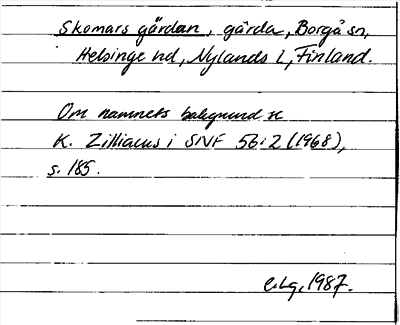 Skomars gärdan, gärda, Borgå sn,
Helsinge hd, Nylands l, Finland.
Om namnets bakgrund se
K. Zilliacus i SNF 56:2 (1968),
s. 185.
C.Lg. 1987.